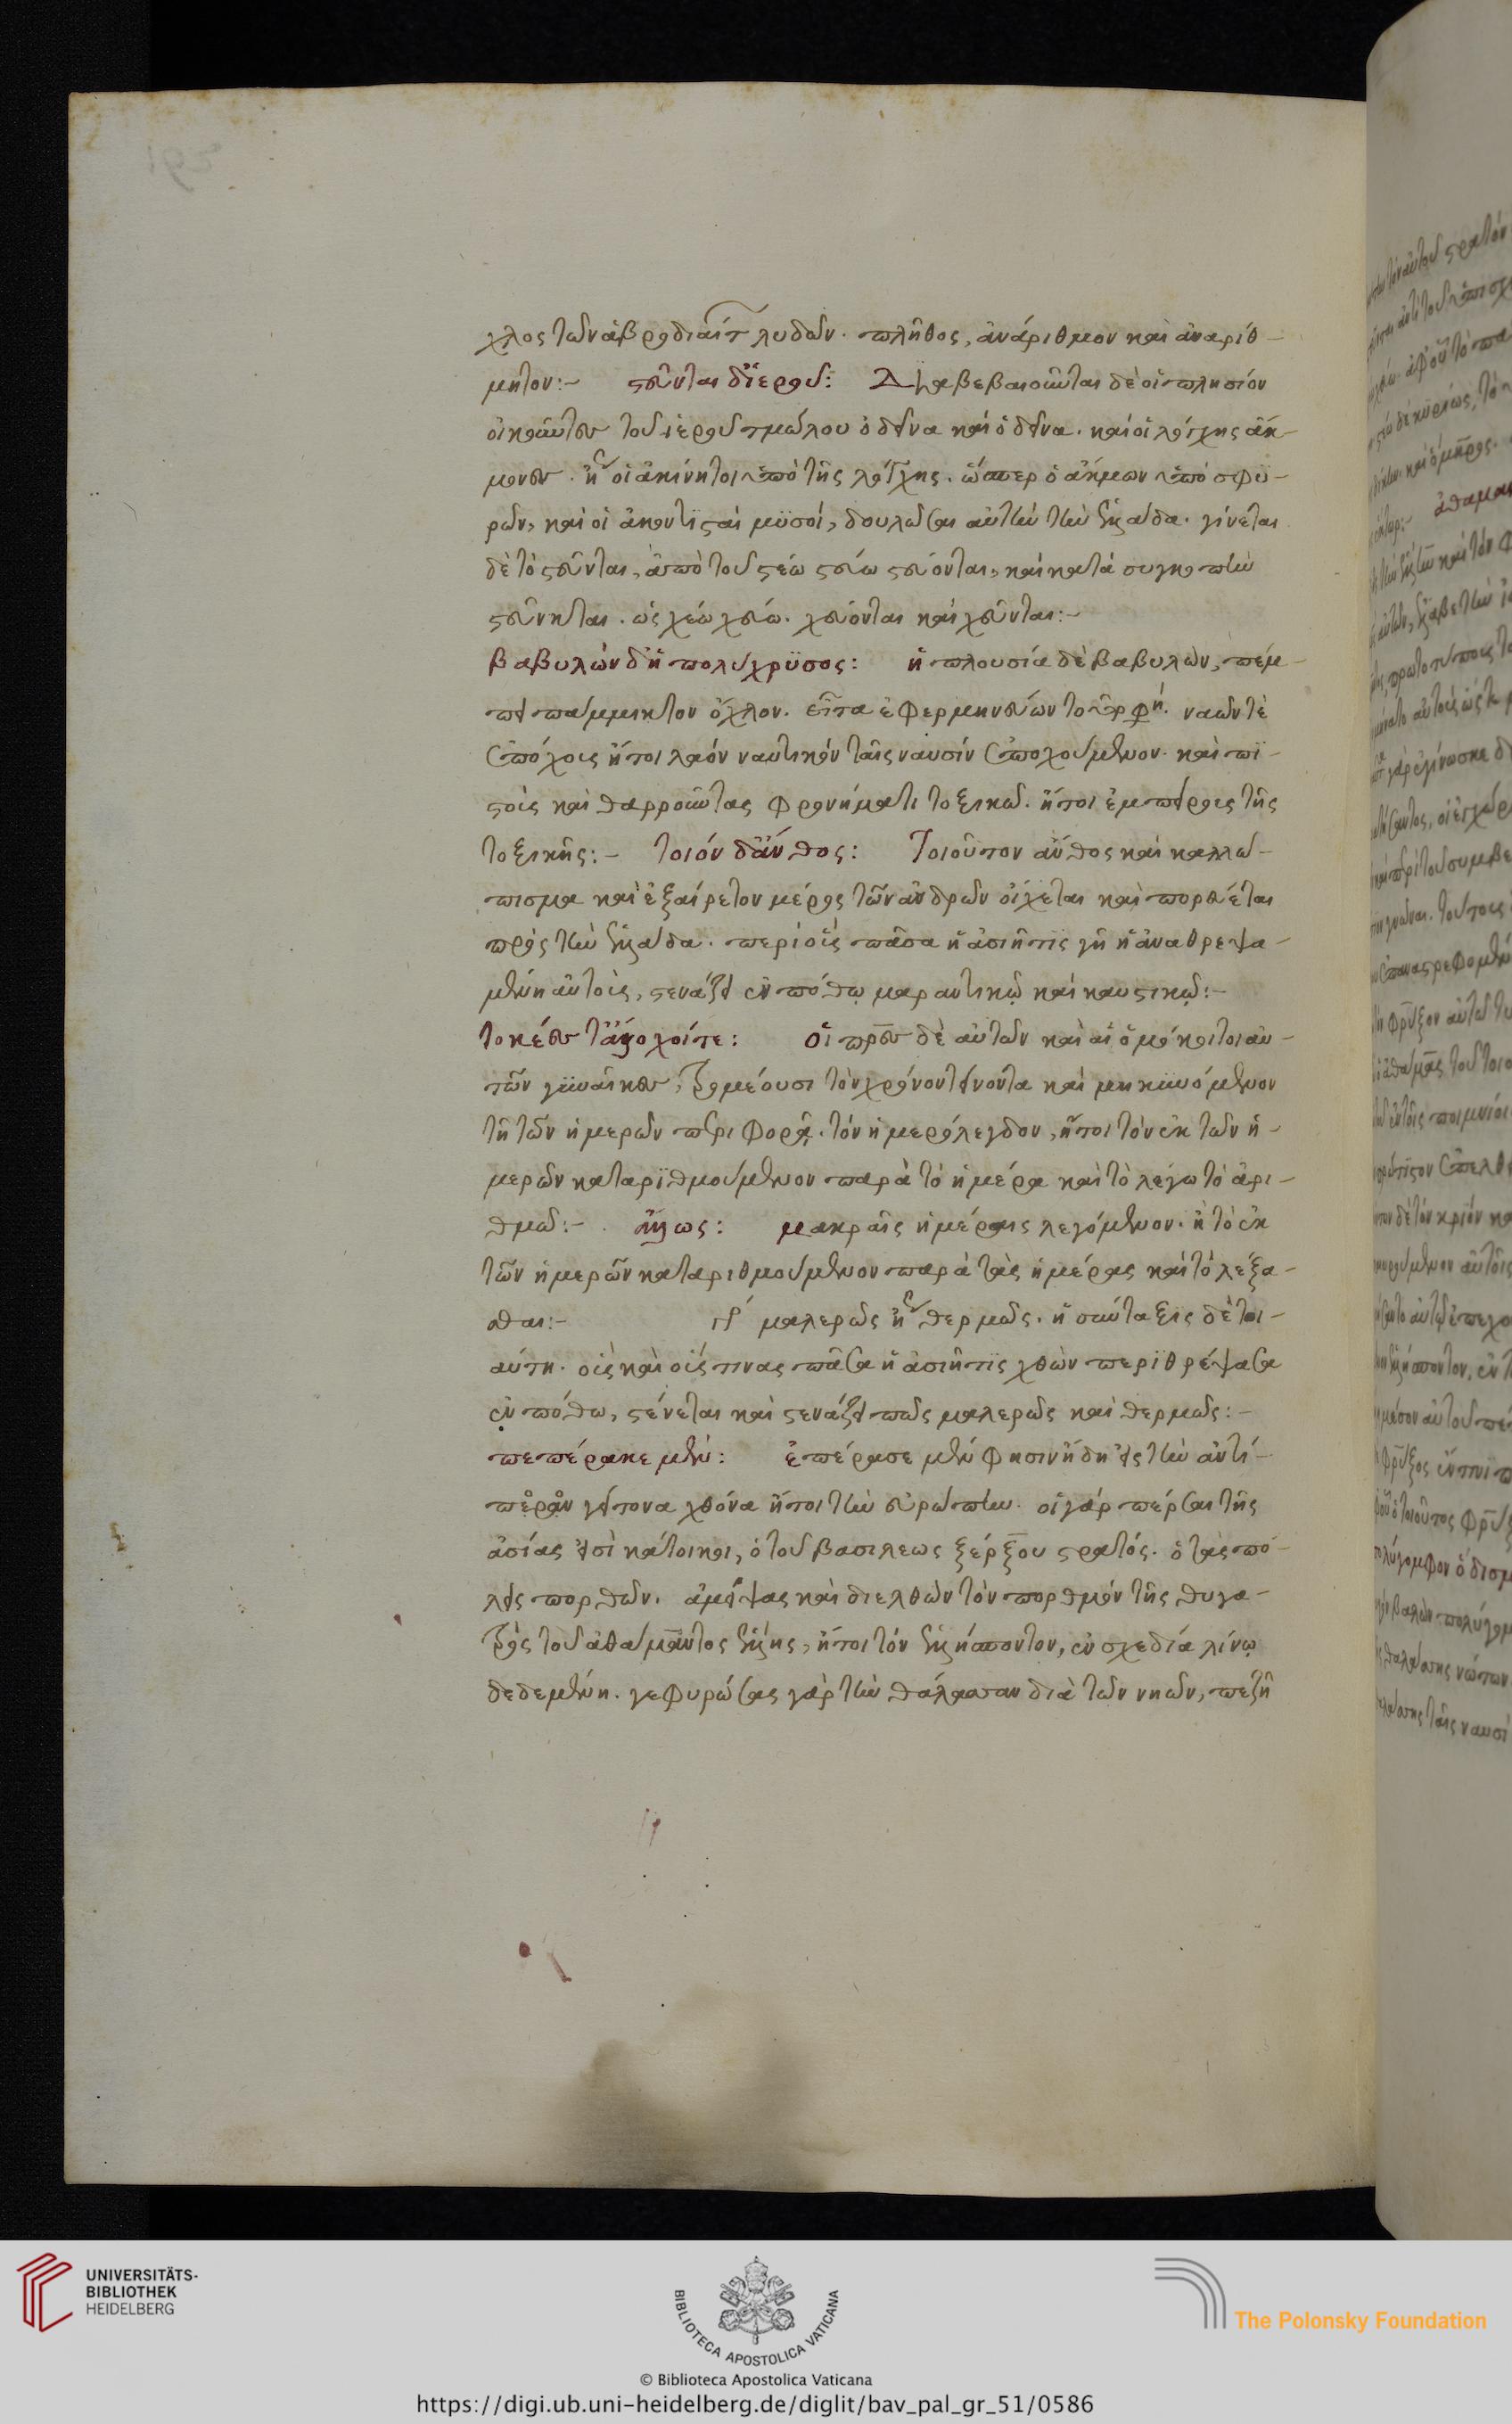 χλος τῶν ἁβροδιαίτ λυδῶν. πλῆθος, ἀνάριθμον καὶ ἀναρίθ-
μητον:- στεῦνται δ' ἱεροῦ: Διαβεβαιοῦνται δὲ οἱ πλησίον
οἰκοῦντες τοῦ ἱεροῦ τμώλου ὁ δεῖνα καὶ ὁ δεῖνα. καὶ οἱ λόγχης ἄκ-
μονες. ἢ οἱ ἀκίνητοι ὑπὸ τῆς λόγχης. ὥσπερ ὁ ἄκμων ὑπὸ σφυ-
ρῶν, καὶ οἱ ἀκοντισταὶ μυσοί, δουλῶσαι αὐτὴν τὴν ἑλλάδα. γίνεται
δὲ τὸ στεῦνται, ἀπὸ τοῦ στέω στεύω στεύονται, καὶ κατὰ συγκοπὴν
στεῦνται. ὡς χέω χεύω. χεύονται καὶ χεῦνται:-
βαβυλὼν δ' ἡ πολύχρυσος: ἡ πλουσία δὲ βαβυλὼν, πέμ-
πει παμμικτον ὄχλον. εἶτα ἐφερμηνεύων τὸ σύρφη. ναῶν τὲ
ἐπόχοις ἤτοι λαὸν ναυτικὸν ταῖς ναυσὶν ἐποχούμενον. καὶ πι-
στοὺς καὶ θαρροῦντας φρονήματι τοξικῶ. ἤτοι ἐμπείρους τῆς
τοξικῆς:- τοιόνδ' ἄνθος: Τοιοῦτον ἄνθος καὶ καλλώ-
πισμα καὶ ἐξαίρετον μέρος τῶν ἀνδρῶν οἴχεται καὶ πορεύεται
πρὸς τὴν ἑλλάδα. περὶ οἷς πᾶσα ἡ ἀσιῆτις γῆ ἡ ἀναθρεψα-
μένη αὐτοὺς, στενάζει ἐν πόθῳ μαραντικῷ καὶ καυστικῷ:-
τοκέες τ' ἄλοχοί τε: οἱ πρες δὲ αὐτῶν καὶ αἱ ὁμόκοιτοι αὐ-
τῶν γυναῖκες, τρομέουσι τὸν χρόνον τείνοντα καὶ μηκυνόμενον
τῆ τῶν ἡμερῶν περιφορᾷ. τὸν ἡμερόλεγδον, ἤτοι τὸν ἐκ τῶν ἡ-
μερῶν καταριθμούμενον παρὰ τὸ ἡμέρα καὶ τὸ λέγω τὸ ἀρι-
θμῶ:- ἄλλως: μακραῖς ἡμέραις λεγόμενον. ἢ τὸ ἐκ
τῶν ἡμερῶν καταριθμούμενον παρὰ τὰς ἡμέρας καὶ τὸ λέξα-
σθαι:- μαλερῶς ἢ θερμῶς. ἡ σύνταξις δὲ τοι-
αύτη. οἷς καὶ οἵς τινας πᾶσα ἡ ἀσιῆτις χθὼν περιθρέψασα
ἐν πόθω, στένεται καὶ στενάζει πῶς μαλερῶς καὶ θερμῶς:-
πεπέρακε μὲν: ἐπέρασε μὲν φησιν ἤδη εἰς τὴν ἀντί-
πέραν γείτονα χθόνα ἤτοι τὴν εὐρώπην. οἱ γὰρ πέρσαι τῆς
ἀσίας εἰσὶ κάτοικοι, ὁ τοῦ βασιλέως ξέρξου στρατός. ὁ τὰς πό-
λεις πορθῶν. ἀμείψας καὶ διελθὼν τὸν πορθμὸν τῆς θυγα-
τρὸς τοῦ ἀθάμαντος ἕλλης, ἤτοι τὸν ἑλλήσποντον, ἐν σχεδία λίνῳ
δεδεμένη. γεφυρώσας γὰρ τὴν θάλασσαν διὰ τῶν νηῶν, πεζῆ
UNIVERSITÄTS-
BIBLIOTHEK
HEIDELBERG
BIBLIOTECA APOSTOLICA VATICANA
The Polonsky Foundation
© Biblioteca Apostolica Vaticana
https://digi.ub.uni-heidelberg.de/diglit/bav_pal_gr_51/0586